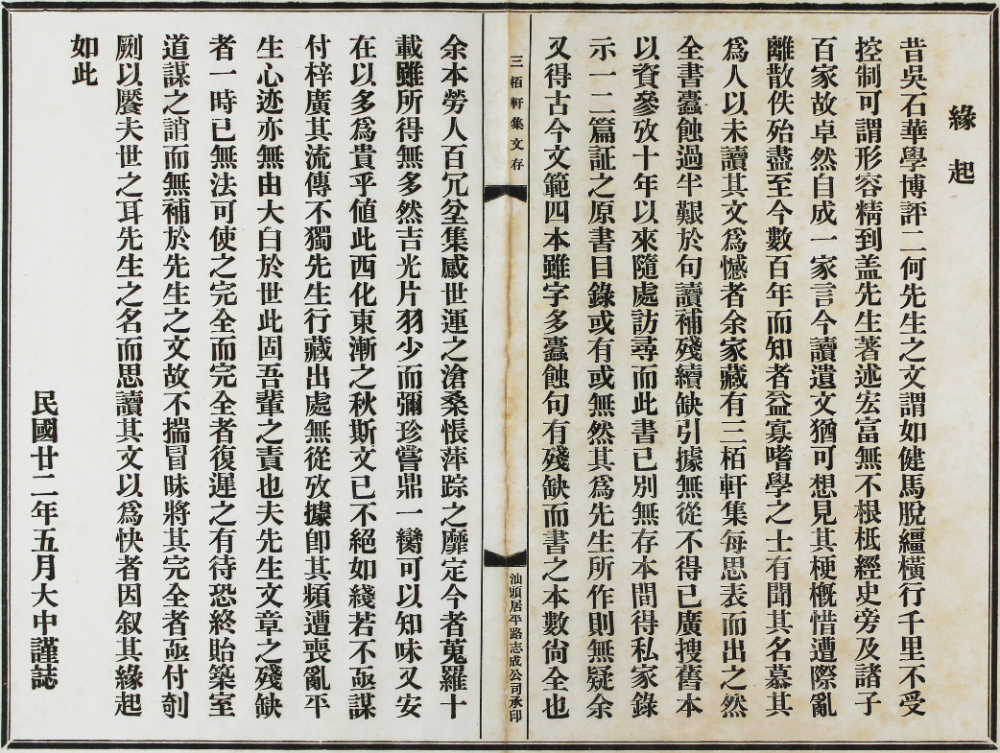 緣起
昔吳石華學博評二何先生之文謂如健馬脫繮橫行千里不受
控制可謂形容精到盖先生著述宏富無不根柢經史旁及諸子
百家故卓然自成一家言今讀遺文猶可想見其梗槪惜遭際亂
離散佚殆盡至今數百年而知者益寡嗜學之士有聞其名慕其
爲人以未讀其文爲憾者余家藏有三栢軒集每思表而出之然
全書蠹蝕過半艱於句讀補殘續缺引據無從不得已廣搜舊本
以資參攷十年以來隨處訪尋而此書已别無存本間得私家錄
示一二篇証之原書目錄或有或無然其爲先生所作則無疑余
又得古今文範四本雖字多蠹蝕句有殘缺而書之本數尙全也
三栢軒集文存
汕頭居平路志成公司承印
余本勞人百冗坌集感世運之滄桑悵萍踪之靡定今者蒐羅十
載雖所得無多然吉光片羽少而彌珍嘗鼎一臠可以知味又安
在以多爲貴乎値此西化東漸之秋斯文已不絕如綫若不亟謀
付梓廣其流傳不獨先生行藏出處無從攷據卽其頻遭喪亂平
生心迹亦無由大白於世此固吾輩之責也夫先生文章之殘缺
者一時已無法可使之完全而完全者復遲之有待恐終貽築室
道謀之誚而無補於先生之文故不揣冒昧將其完全者亟付剞
劂以饜夫世之耳先生之名而思讀其文以爲快者因叙其緣起
如此
民國廿二年五月大中謹誌